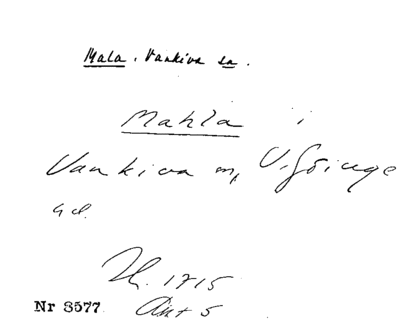 Mala. Vankiva sn.
Mahla i
Vankiva sn, V. Göinge
hd.
Jb. 1715
Nr 3577 Ant 5